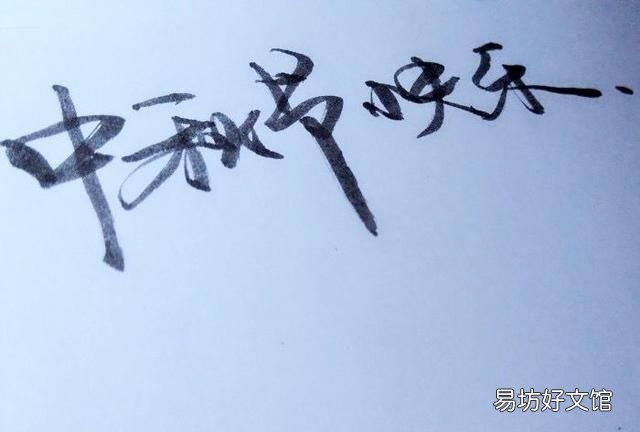 中秋节快乐.
易坊好文馆